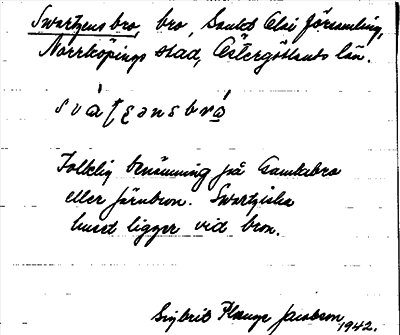 Swartzens bro, bro, Sankt Olai församling,
Norrköpings stad, Östergötlands län.
Folklig benämning på Gamlebro
eller Järnbron. Swartziska
huset ligger vid bron.
Sigbrit Plænge Jacobson 1942.